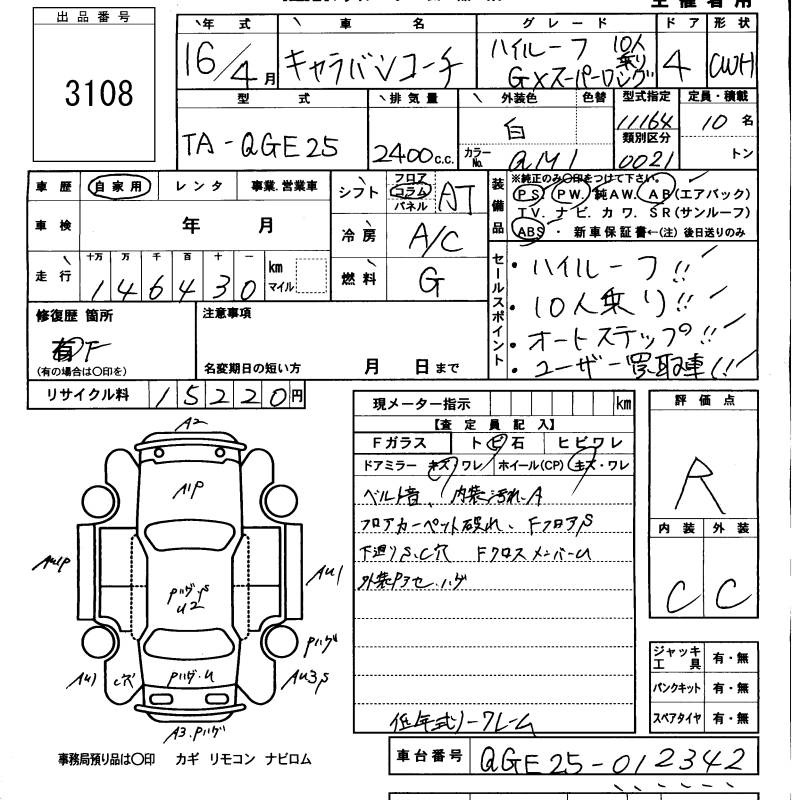 出品番号
3108
年式 車名 グレード ドア 形状
16/4月 キャラバンコーチ ハイルーフ 10人乗り GXスーパーロング 4 CWH
型式 排気量 外装色 色替 型式指定 定員・積載
TA-QGE25 2400c.c. 白 11164 10名
カラーNo. QM1 類別区分 0021 トン
車歴 自家用 レンタ 事業.営業車
シフト フロア コラム パネル AT
装備品 ※純正のみ〇印をつけて下さい。
PS. PW. 純AW. AB(エアバック)
TV. ナビ. カワ. SR(サンルーフ)
ABS・ 新車保証書←(注) 後日送りのみ
車検 年 月
冷房 A/C
走行 十万 万 千 百 十 一 km マイル
146430
燃料 G
セールスポイント
・ハイルーフ!!
・10人乗り!!
・オートステップ!!
・ユーザー買取車!!
修復歴 箇所
有 F
(有の場合は〇印を)
注意事項
名変期日の短い方 月 日まで
リサイクル料 15220円
現メーター指示 km
【査定員記入】
Fガラス トビ石 ヒビワレ
ドアミラー キズ・ワレ ホイール(CP) キズ・ワレ
ベルト音、内装汚れ.A
フロアカーペット破れ、FフロアS
下廻りS.C穴 FクロスメンバーU
外装Pアセ.ハゲ
低年式ノークレーム
評価点
R
内装 外装
C C
ジャッキ工具 有・無
パンクキット 有・無
スペアタイヤ 有・無
A2
A1P
AU1P
AU1
Pハゲ.S
U2
Pハゲ
AU1
C穴
Pハゲ.U
AU3S
A3.Pハゲ
事務局預り品は〇印 カギ リモコン ナビロム
車台番号 QGE25-012342